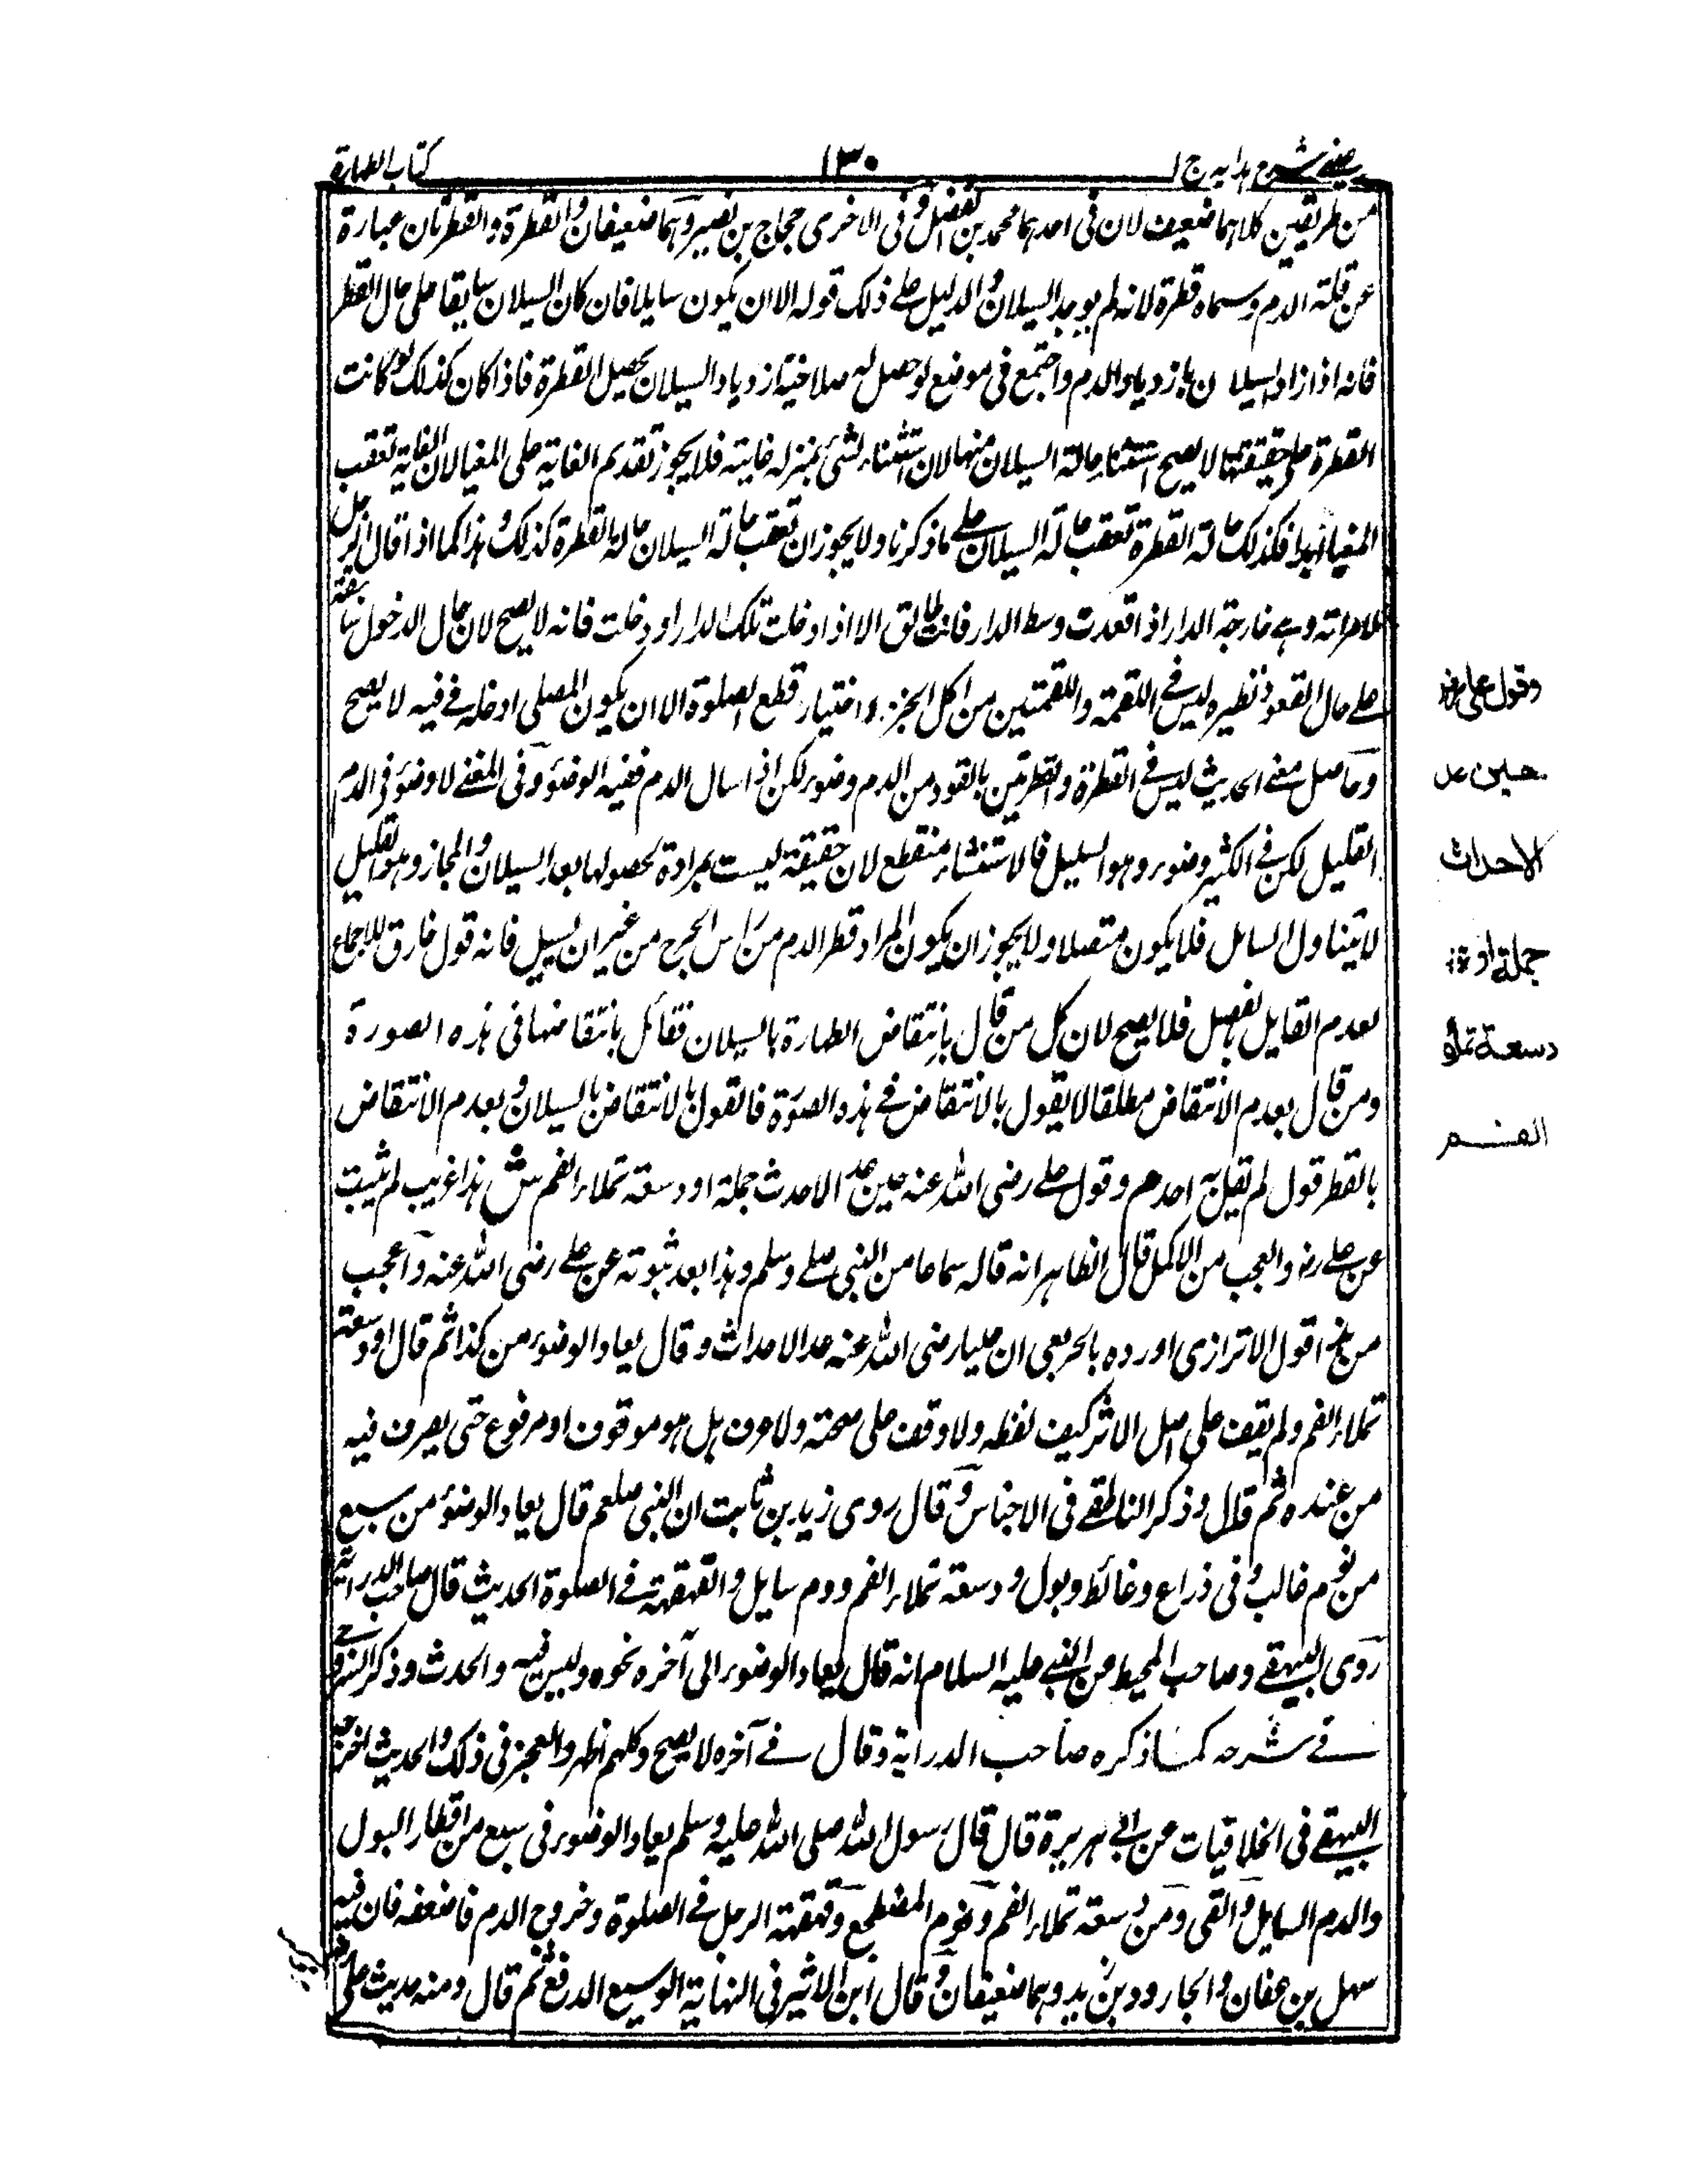 عینی شرح ہدایہ ج ۱
۱۳۰
کتاب الطہارة
من طریقین کلاہما ضعیف لان فی احدہما محمد بن الفضل وفی الاخری حجاج بن نصیر وہما ضعیفان والقطرة والقطرتان عبارة
عن قلة الدم وسماہ قطرة لانہ لم یوجد السیلان والدلیل علے ذلک قولہ الا ان یکون سایلا فان کان السیلان سابقا علی حال القطر
فانہ اذا زاد السیلان بازدیاد الدم واجتمع فی موضع لو حصل لہ صلاحیة ازدیاد السیلان یحصل القطرة فاذا کان کذلک لو کانت
القطرة علی حقیقتہا لا یصح استثناء حالة السیلان منہا لان استثناء الشئ بمنزلہ غایتہ فلا یجوز تقدیم الغایة علی المغیا لان الغایة تعقب
المغیا ابدا فکذلک حالة القطرة تعقب حالة السیلان علے ما ذکرنا ولا یجوز ان تعقب حالة السیلان حالة القطرة کذلک وہذا کما اذا قال الرجل
لامراتہ وہے خارجة الدار اذا قعدت وسط الدار فانت طالق الا اذا دخلت تلک الدار او دخلت فانہ لا یصح لان حال الدخول سابقة
علے حال القعود ونظیرہ لیس فے اللقمة واللقمتین من اکل الخبز واختیار قطع الصلوة الا ان یکون المصلی ادخلہ فے فیہ لا یصح
وحاصل معنے الحدیث لیس فے القطرة والقطرتین بالقود من الدم وضوء لکن اذا سال الدم ففیہ الوضوء وفی المغنے لا وضوء فی الدم
القلیل لکن فے الکثیر وضوء وہو السیل فالاستثناء منقطع لان حقیقة لیست بمرادة لحصولہا بعد السیلان والمجاز وہو القلیل
لا یتناول السایل فلا یکون متصلا ولا یجوز ان یکون المراد قطر الدم من راس الجرح من غیر ان یسیل فانہ قول خارق للاجماع
لعدم القایل بالفصل فلا یصح لان کل من قال بانتقاض الطہارة بالسیلان فقائل بانتقاضہا فی ہذہ الصورة
ومن قال بعدم الانتقاض مطلقا لا یقول بالانتقاض فے ہذہ الصورة فالقول بالانتقاض بالسیلان وبعدم الانتقاض
بالقطر قول لم یقل بہ احد م وقول علے رضی اللہ عنہ حین عد الاحدث جملة او دسعة تملاء الفم ش ہذا غریب لم یثبت
عن علے رض والعجب من الاکمل قال الظاہر انہ قالہ سماعا من النبی صلے وسلم وہذا بعد ثبوتہ عن علے رضی اللہ عنہ واعجب
من ہذا قول الاترازی اوردہ ان علیا رضی اللہ عنہ عد الاحداث وقال یعاد الوضوء من کذا ثم قال او دسعة
تملاء الفم ولم یقف علی اصل الاثر کیف لفظہ ولا وقف علی صحتہ ولا عرف ہل ہو موقوف او مرفوع حتی یصرف فیہ
من عندہ ثم قال وذکر الناطقے فی الاجناس وقال روی زید بن ثابت ان النبی صلعم قال یعاد الوضوء من سبع
من نوم غالب وفی ذراع وغائط وبول ودسعة تملاء الفم ودم سایل والقہقہة فے الصلوة الحدیث قال صاحب الدرایة
روی البیہقے وصاحب المحیط من النبے علیہ السلام انہ قال یعاد الوضوء الی آخرہ نحوہ ولیس فیہ والحدث وذکر السروجے
فے شرحہ کما ذکرہ صاحب الدرایة وقال فے آخرہ لا یصح وکلہم اظہروا العجز فی ذلک والحدیث اخرجہ
البیہقے فی الخلافیات عن ابے ہریرة قال قال رسول اللہ صلی اللہ علیہ وسلم یعاد الوضوء فی سبع من اقطار البول
والدم السایل والقی ومن دسعة تملاء الفم ونوم المضطجع وقہقہة الرجل فے الصلوة وخروج الدم فاضعفہ فان فیہ
سہل بن عفان والجارود بن یزید وہما ضعیفان وقال ابن الاثیر فی النہایة الوسیع الدفع ثم قال ومنہ حدیث علی
وقول علی رض
حین عد
الاحداث
جملة او
دسعة تملأ
الفم